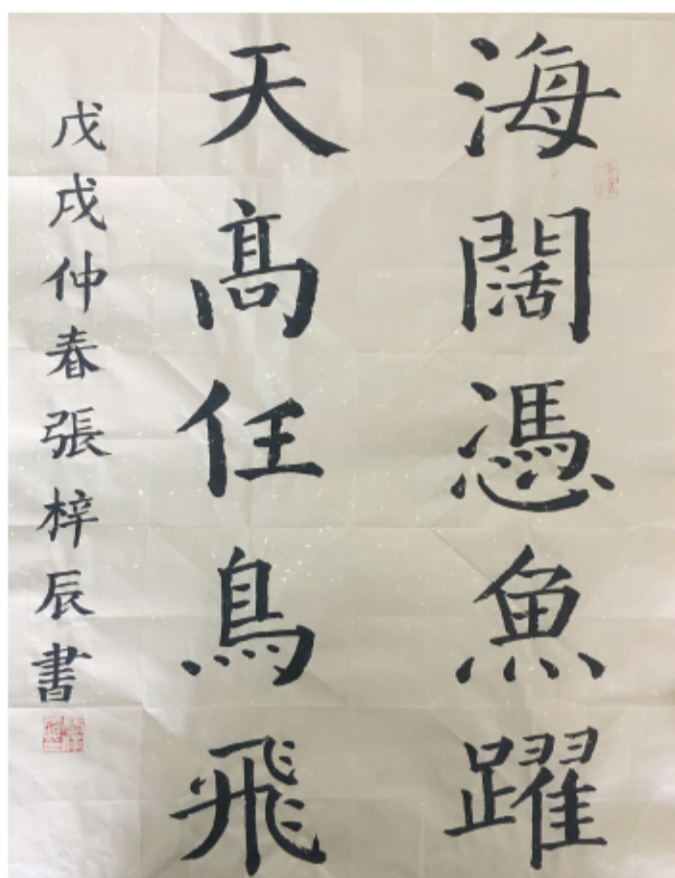 海闊憑魚躍
天高任鳥飛
戊戌仲春張梓辰書